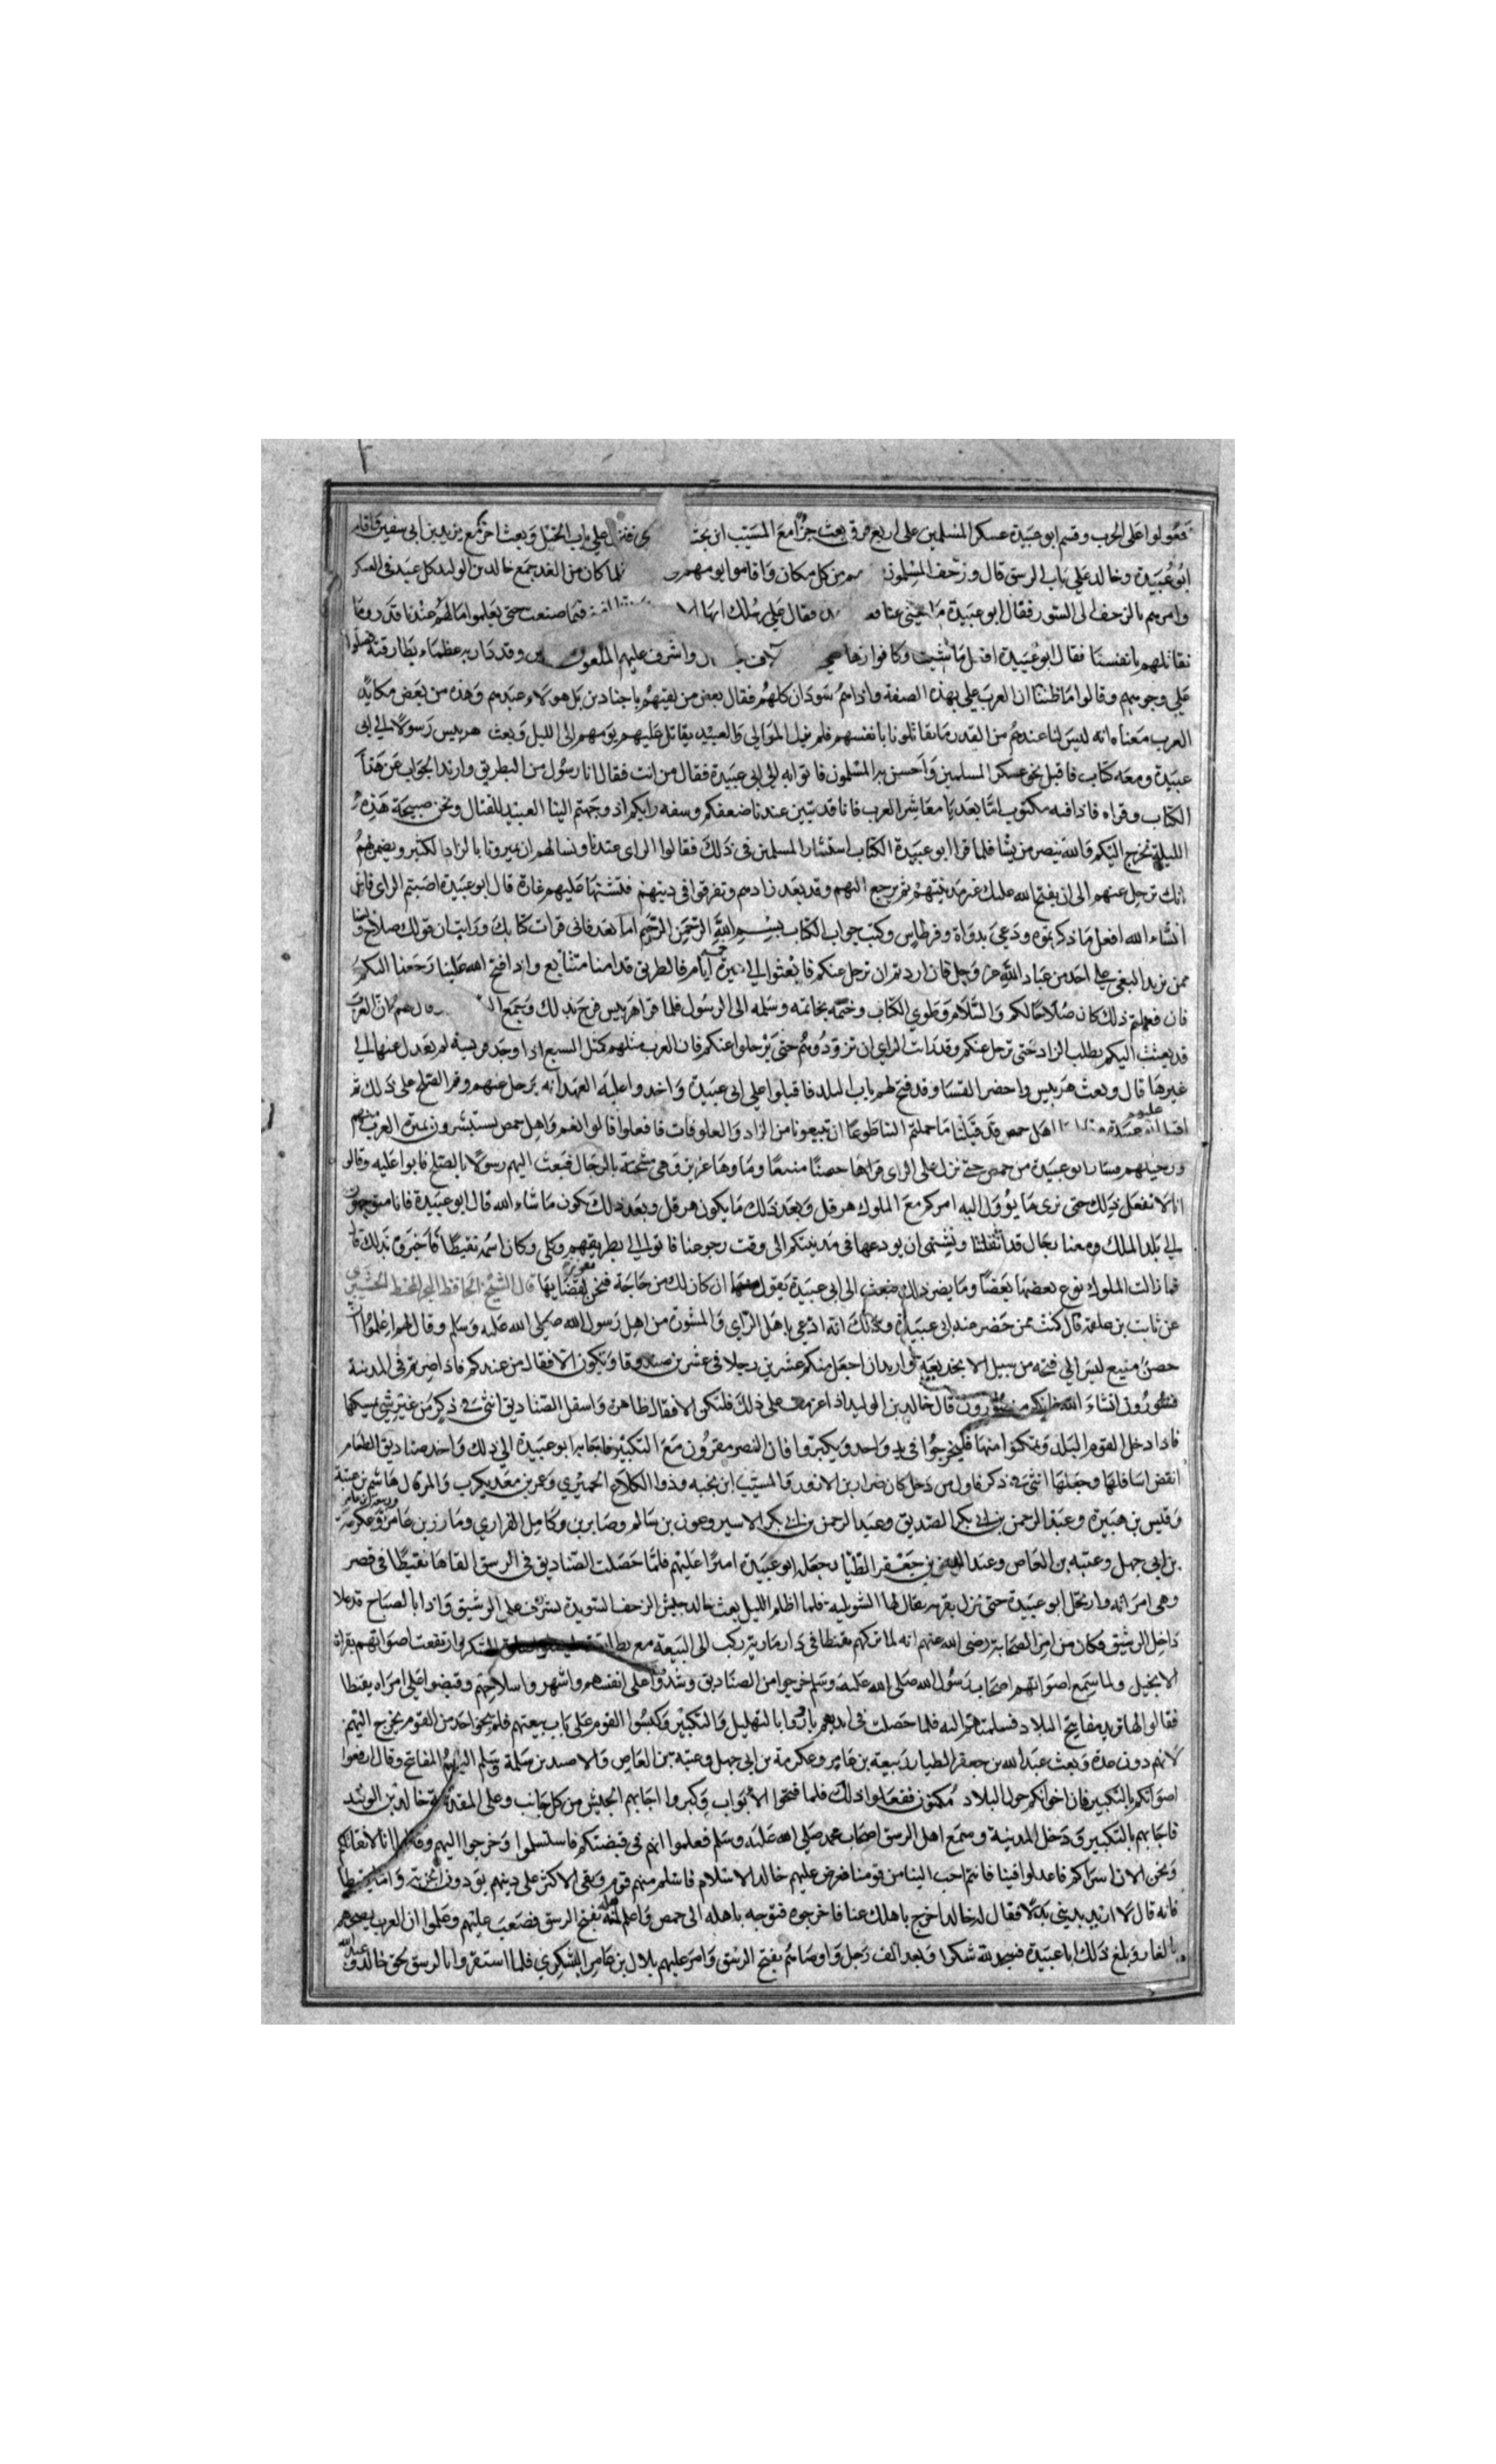 فعولوا على الحرب وقسم ابو عبيدة عسكر المسلمين على اربع فرق بعث جزءا مع المسيب ابن نجبة فنزل على باب الجبل وبعث اخر مع يزيد بن ابي سفين واقام
ابو عبيدة وخالد على باب الرستن قال وزحف المسلمون من كل مكان واقاموا يومهم فلما كان من الغد جمع خالد بن الوليد كل عبد في العسكر
وامرهم بالزحف الى السور فقال ابو عبيدة فقال على رسلك ايها فما صنعت حتى يعلموا ما لهم عندنا قدر وما
نقاتلهم بانفسنا فقال ابو عبيدة افعل ما شئت وكانوا زها الاف واشرف عليهم الملعون وقد دار به عظماء بطارقته
على وجوههم وقالوا ما ظننا ان العرب على بهذه الصفة واذا هم سودان كلهم فقال بعض من لقيهم باجنادين بل هولاء عبيدهم وهذه من بعض مكايد
العرب معناه انه ليس لنا عندهم من القدر ما يقاتلونا بانفسهم فلم تزل الموالي والعبيد يقاتل عليهم يومهم الى الليل وبعث هربيس رسولا الى ابي
عبيدة ومعه كتاب فاقبل نحو عسكر المسلمين واحسن به المسلمون فاتوا به الى ابي عبيدة فقال من انت فقال انا رسول من البطريق واريد الجواب عن هذا
الكتاب وقراه فاذا فيه مكتوب اما بعد يا معاشر العرب فانا قد تبين عندنا ضعفكم وسفه رايكم اذ وجهتم الينا العبيد للقتال ونحن صبيحة هذه
الليلة نخرج اليكم والله ينصر من يشا فلما قرا ابو عبيدة الكتاب استشار المسلمين في ذلك فقالوا الراى عندنا ونسالهم ان يميرونا بالزاد الكثير ويضمن لهم
انك ترحل عنهم الى ان يفتح الله عليك غير مدينتهم ثم يرجع اليهم وقد بعد زادهم وتفرقوا في دينهم فتشنها عليهم غارة قال ابو عبيدة اصبتم الراى فاني
انشاء الله افعل ما ذكرتموه ودعى بدواة وقرطاس وكتب جواب الكتاب بسم الله الرحمن الرحيم اما بعد فاني قرات كتابك ورايت ان قولك صلاح
ممن يريد البغي على احد من عباد الله عز وجل فان اردتم ان نرحل عنكم فابعثوا الى ميرة خمسة ايام فالطريق قدامنا متتابع واذا فتح الله علينا رجعنا اليكم
فان فعلتم ذلك كان صلاحا لكم والسلام وطوي الكتاب وختمه بخاتمه وسلمه الى الرسول فلما قرا هربيس فرح بذلك وجمع وقال لهم ان العرب
قد بعثت اليكم بطلب الزاد حتى ترحل عنكم وقد رات الراي ان تزودوهم حتى يرحلوا عنكم فان العرب مثلهم كمثل السبع اذا وجد فريسة لم يعدل عنها الى
غيرها قال وبعث هربيس واحضر القسا وقد فتح لهم باب البلد فاقبلوا على ابي عبيدة واخذوا عليه العهد انه يرحل عنهم وتم الصلح على ذلك ثم
اهل حمص قد قبلنا ما حملتم الينا طوعا ان تبيعونا من الزاد والعلوفات فافعلوا قالوا نعم واهل حمص يستبشرون بميرة العرب منهم
ورحيلهم وسار ابو عبيدة من حمص حتى نزل على فراها حصنا منيعا وماوها غزير وهي مشحنة بالرجال فبعث اليهم رسولا بالصلح فابوا عليه وقالوا
انا لا نفعل ذلك حتى نرى ما يؤول اليه امركم مع الملوك هرقل وبعد ذلك ما يكون هرقل وبعد ذلك يكون ما شاء الله قال ابو عبيدة فانا متوجهون
الى بلد الملك ومعنا رجال قد اثقلتنا ونشتهى ان نودعها في مدينتكم الى وقت رجوعنا فاتوا الى بطريقهم وكان اسمه نقيطا فاخبروه بذلك قال
فما زالت الملوك يودع بعضها بعضا وما يضر ذلك فبعث الى ابي عبيدة يقول ان كان لك من حاجة فنحن نقضايها قال الشيخ الحافظ
عن ثابت بن علقمة قال كنت ممن حضر عند ابي عبيدة وذلك انه ادعى باهل الراى والمشورة من اهل رسول الله صلى الله عليه وسلم وقال لهم اعلموا ان
حصن منيع ليس الى فتحه من سبيل الا بخديعة واريد ان اجعل منكم عشرين رجلا في عشرين صندوقا وتكون الاقفال من عندكم فاذا صرتم في المدينة
فثورون انشاء الله فانكم منصورون قال خالد بن الوليد اذ عزمت على ذلك فلتكن الاقفال ظاهرة واسفل الصناديق انثى في ذكر من غير شي يمسكها
فاذا دخل القوم البلد وتمكنوا منها فليخرجوا في يد واحد ويكبروا فان النصر مقرون مع التكبير فاجابه ابو عبيدة الى ذلك واخذ صناديق الطعام
انقض اسافلها وجعلها انثى في ذكر فاول من دخل كان ضرار بن الازور والمسيب ابن نجبه وذوا الكلاع الحميري وعمر بن معديكرب والمرقال هاشم بن عتبة
وقيس بن هبيرة وعبد الرحمن بن ابي بكر الصديق وعبد الرحمن بن ابي بكر الاسير وعون بن سالم وصابر بن وكامل الفزاري ومازن بن عامر وعكرمة
بن ابي جهل وعتبه بن العاص وعبد الله بن جعفر الطيار وجعل ابو عبيدة اميرا عليهم فلما حصلت الصناديق في الرستن القاها نقيطا في قصر
وهي امراته وارتحل ابو عبيدة حتى نزل بقريه يقال لها السويديه فلما اظلم الليل بعث خالد بجيش الزحف على الرستن واذا بالصباح قد علا
داخل الرستن فكان من امر الصحابة رضى الله عنهم انه لما تركهم نقيطا في دار ركب الى البيعة مع بطارقته وارتفعت اصواتهم بقراة
الانجيل ولما سمع اصواتهم اصحاب رسول الله صلى الله عليه وسلم خرجوا من الصناديق وشدوا على انفسهم واشهروا سلاحهم وقبضوا على امراه نقيطا
فقالوا لها نريد مفاتيح البلاد فسلمتهم اليه فلما حصلت في ايديهم بادروا بالتهليل والتكبير وكبسوا القوم على باب بيعتهم فلم يجر احد من القوم يخرج اليهم
لانهم دون عدة وبعث عبد الله بن جعفر الطيار ربيعة بن عامر وعكرمة بن ابي جهل وعتبة بن العاص والاصيد بن سلمة وسلم اليهم المفاتيح وقال ارفعوا
اصواتكم بالتكبير فان اخوانكم حول البلاد مكمنون ففعلوا ذلك فلما فتحوا الابواب وكبروا اجابهم الجيش من كل جانب وعلى المقدمة خالد بن الوليد
فاجابهم بالتكبير ودخل المدينة وسمع اهل الرستن اصحاب محمد صلى الله عليه وسلم فعلموا انهم في قبضتكم فاستسلموا وخرجوا اليهم وقالوا انا لا نقاتلكم
ونحن الان اسراكم فاعدلوا فينا فانتم احب الينا من قومنا فعرض عليهم خالد الاسلام فاسلم منهم قوم وبقي الاكثر على دينهم يودون الجزية واما نقيطا
فانه قال لا اريد بديني بدلا فقال له خالد اخرج باهلك عنا فاخرجوه فتوجه باهله الى حمص واعلمهم بفتح الرستن فصعب عليهم وعلموا ان العرب
بالغار وبلغ ذلك ابا عبيدة فسجد لله شكرا وبعد الف رجل واوصاهم بفتح الرستن وامر عليهم بلال بن عامر اليشكري فلما استقروا بالرستن لحق خالد